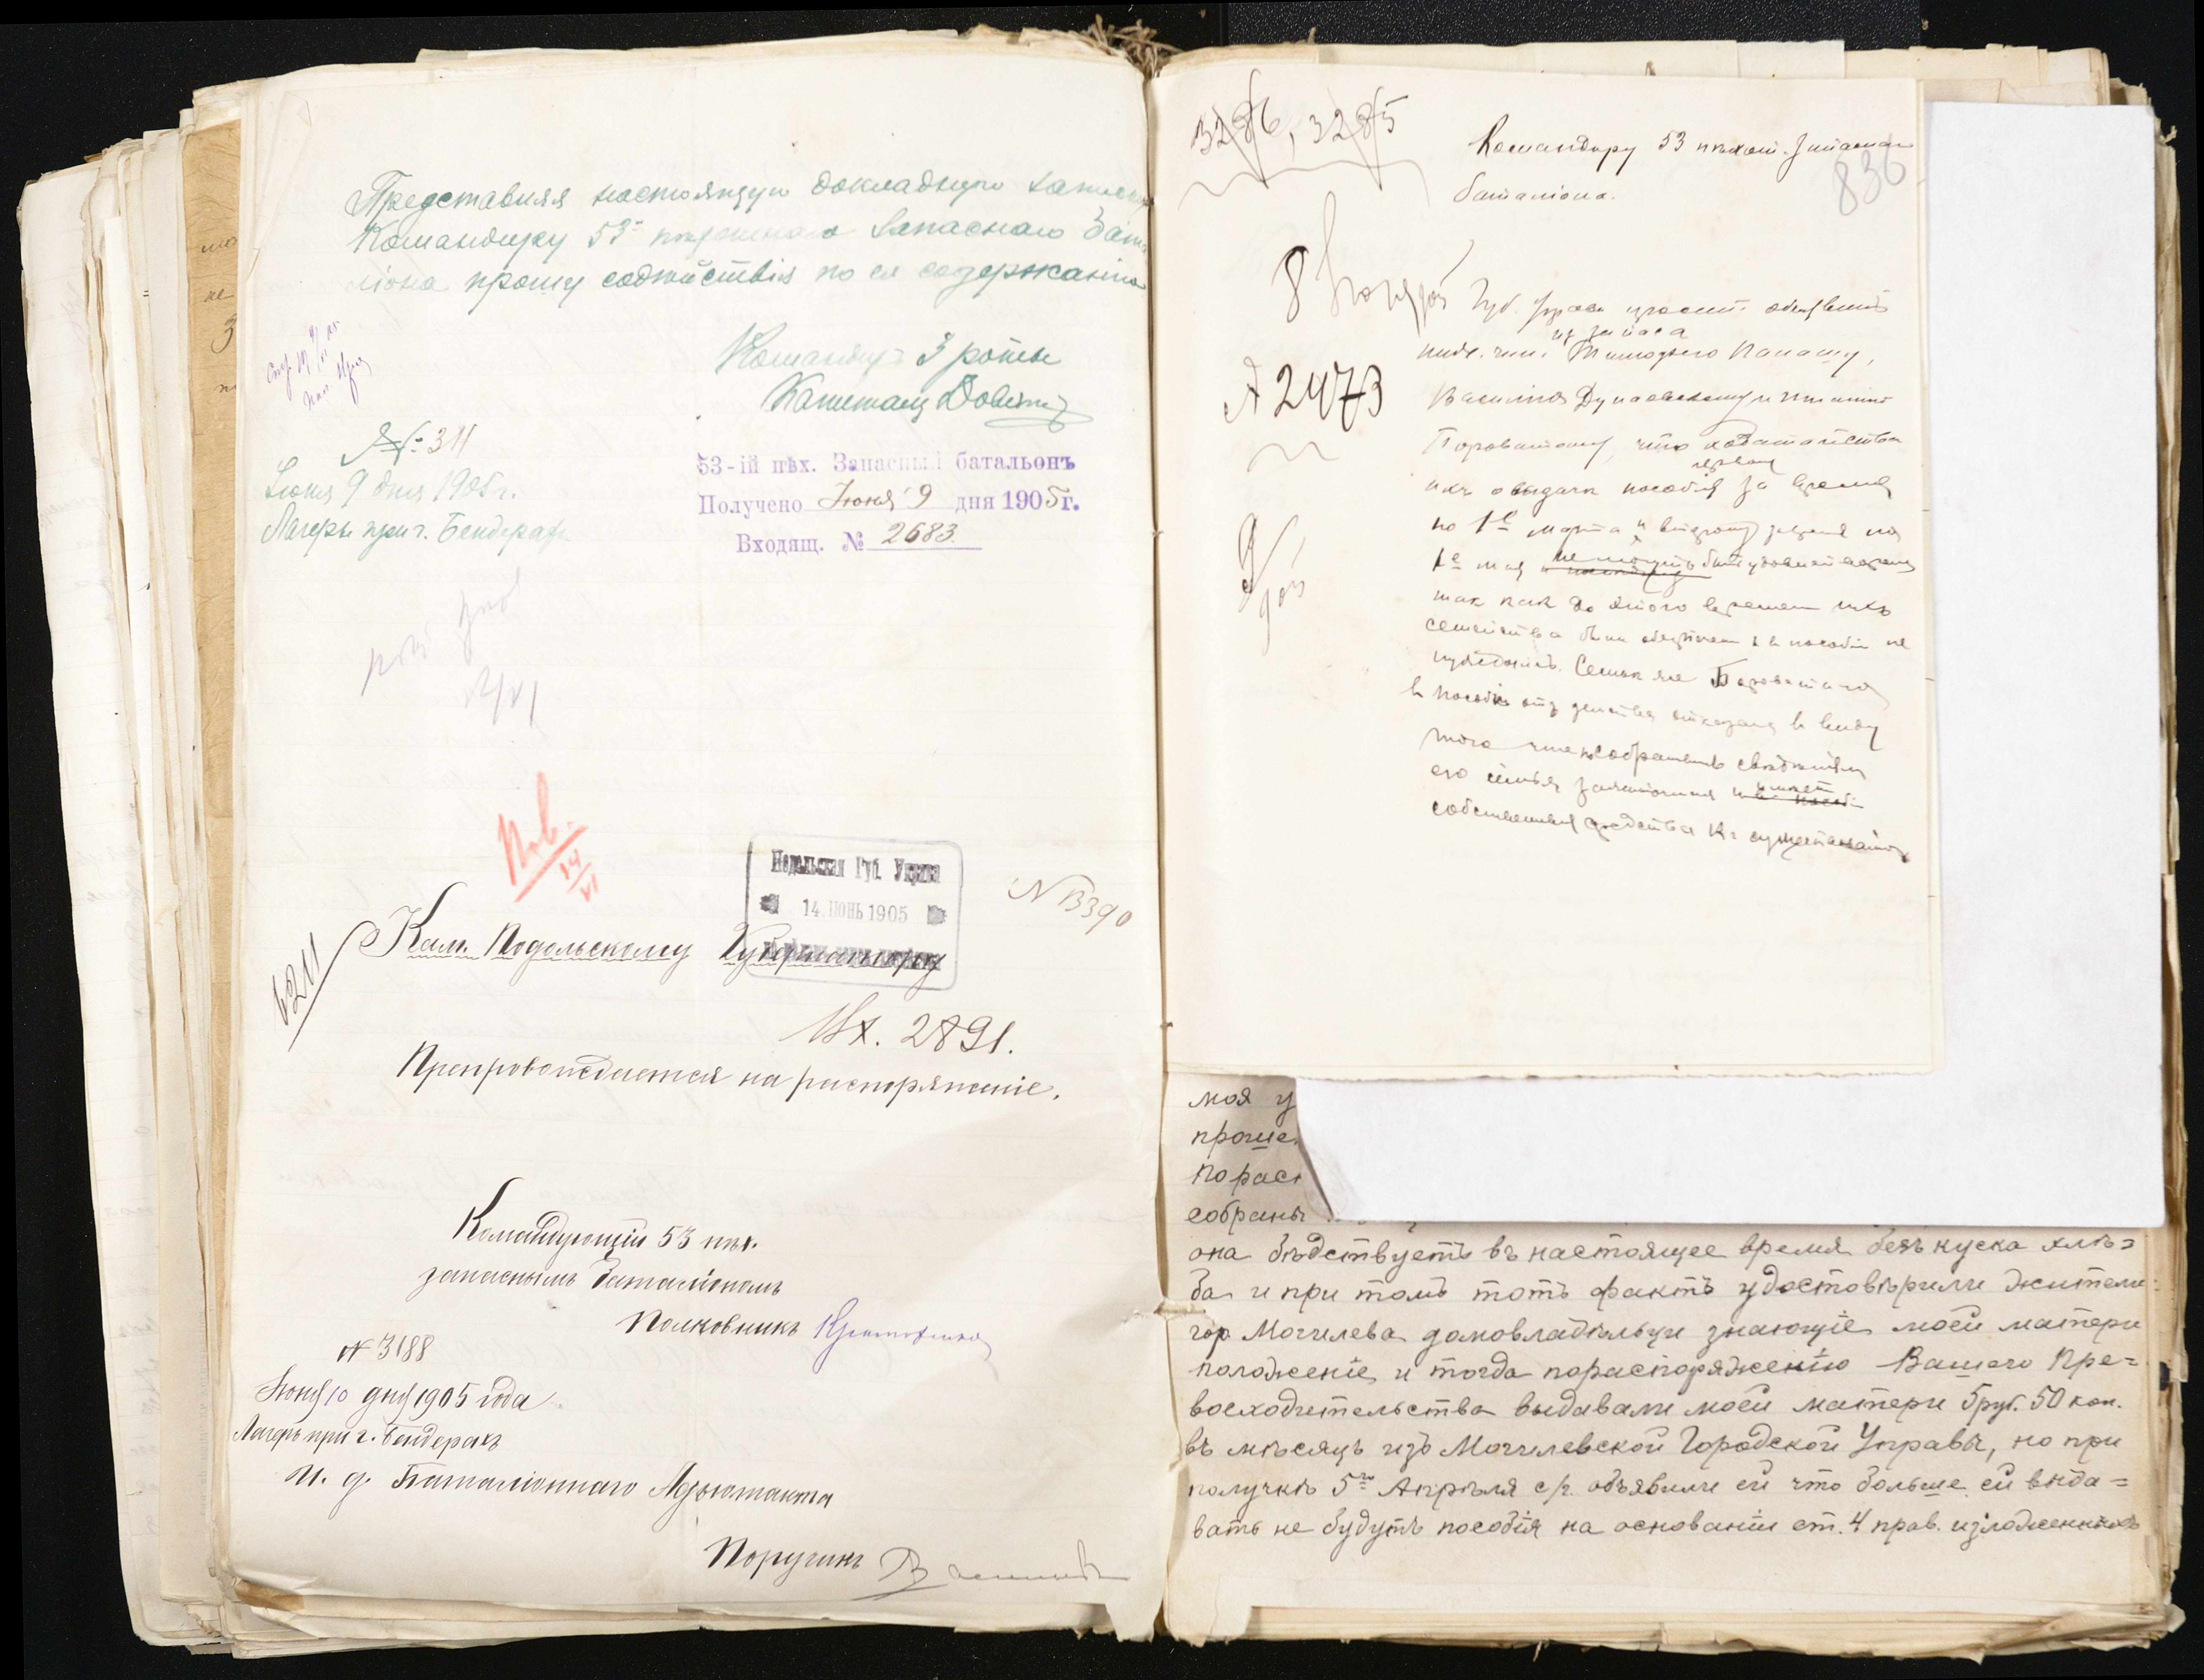 Представляя настоящую докладную записку
Командиру 53го пѣхотнаго Запаснаго Бата
ліона прошу содѣйствія по ея содержанію
Командиръ 3 роты
Капитанъ
№ 311
Іюня 9 дня 1905 г.
Лагерь при г. Бендерахъ
53-ій пѣх. Запасный батальонъ
Получено Іюня 9 дня 1905 г.
Входящ. № 2683
Пов.
14/VI
Подольская Губ. Управа
14 ІЮНЬ 1905
N 13390
6211
Кам. Подольскому Губернатору
Вх. 2891.
Препровождается на распоряженіе.
Командующій 53 пѣх.
запаснымъ баталіономъ
Полковникъ
№ 3188
Іюня 10 дня 1905 года
Лагерь при г. Бендерахъ
И. д. Баталіоннаго Адъютанта
Поручикъ
3286, 3285
Командиру 53 пѣхот. Запаснаго
баталіона.
836
8
Губ. Управа просит объявить
из запаса
нижн. чин. Тимофею
Василію Дунаевскому и
что ходатайства
первому
ихъ о выдачи пособія за время
по 1е марта и второму время по
1е мая не могутъ быть удовлетворены
так как до этого времени ихъ
семейства были обезпечены и в пособіи не
нуждались. Семьи же
в пособіи отъ земства отказано в виду
того что по собраннымъ свѣдѣніямъ
его семья зажиточная имѣет
собственныя средства къ существованію
№ 2473
моя у
проше
по расп
собраны
она бѣдствуетъ въ настоящее время безъ куска хлѣ=
ба и при томъ тотъ фактъ удостовѣрили жители
гор. Могилева домовладѣльцы знающіе моей матери
положеніе и тогда по распоряженію Вашего Пре=
восходительства выдавали моей матери 5 руб. 50 коп.
въ мѣсяцъ изъ Могилевской Городской Управы, но при
получкѣ 5го Апрѣля с/г. объявили ей что больше ей выда=
вать не будутъ пособія на основаніи ст. 4 прав. изложенныхъ